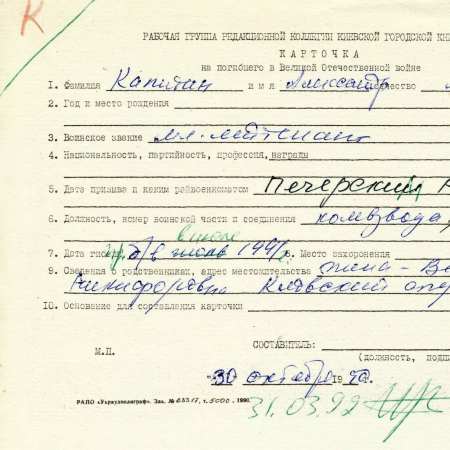 К
РАБОЧАЯ ГРУППА РЕДАКЦИОННОЙ КОЛЛЕГИИ КИЕВСКОЙ ГОРОДСКОЙ КНИ
КАРТОЧКА
на погибшего в Великой Отечественной войне
1. Фамилия Капитин имя Александр отчество
2. Год и место рождения
3. Воинское звание мл. лейтенант
4. Национальность, партийность, профессия, награды
5. Дата призыва и каким райвоенкоматом Печерский
6. Должность, номер воинской части и соединения комвзвода,
в июле
7. Дата гибели в июле 1941 г. 8. Место захоронения
9. Сведения о родственниках, адрес местожительства жена -
Никифоровна Киевский
10. Основание для составления карточки
СОСТАВИТЕЛЬ:
М.П. (должность, подп
"30" октября 1990г.
РАПО «Укрвузполиграф». Зак. № 03317, т. 5000, 1990.
31.03.92